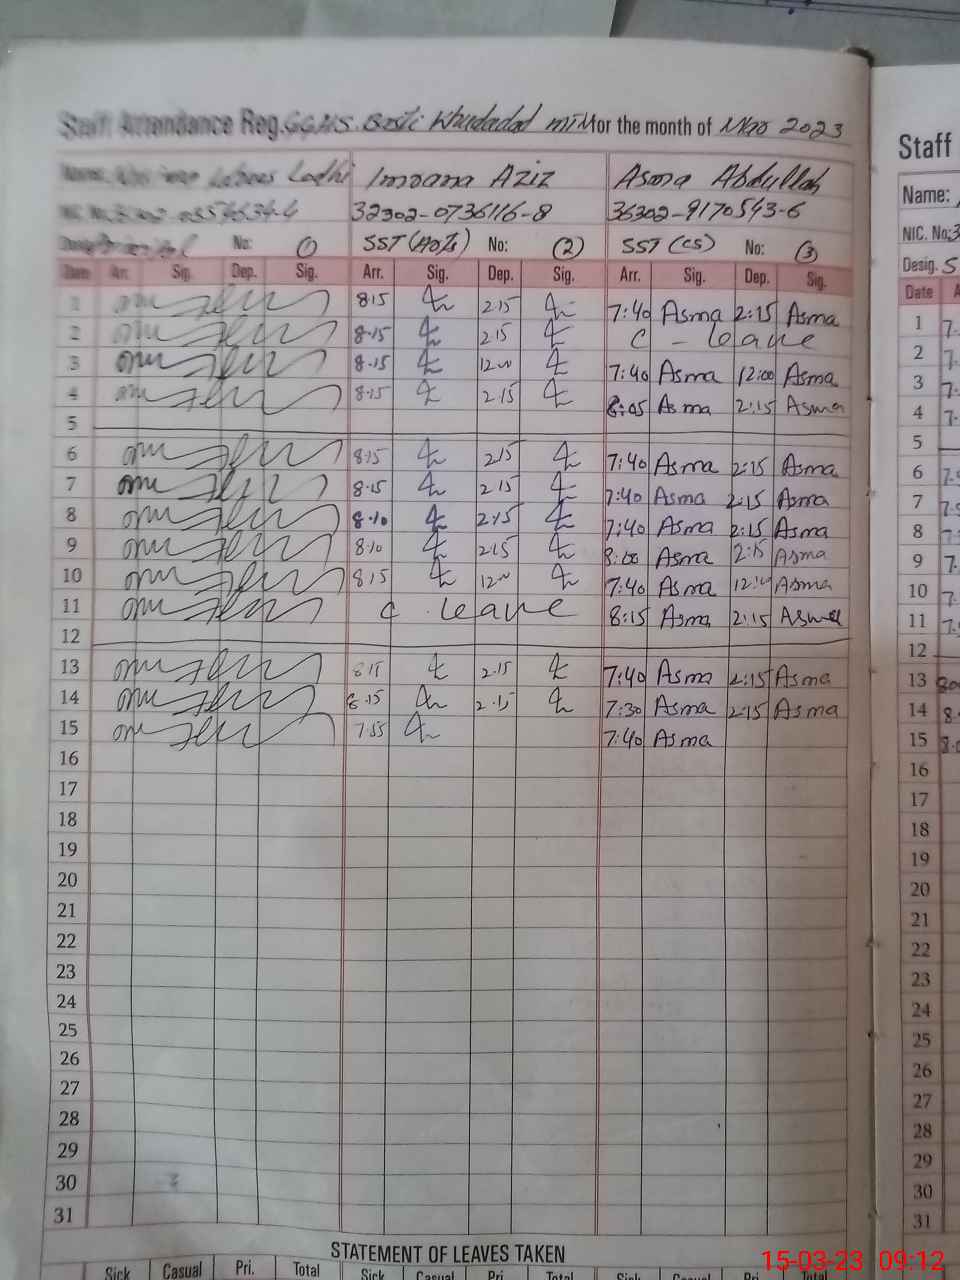 Staff Attendance Reg. G.G.H.S. Basti Khudadad MTM for the month of Mar 2023
Name: Lodhi Imrana Aziz Asma Abdullah
32302-0736116-8 36302-9170543-6
No: (1) SST (No: (2) SST (CS) No: (3)
Date Arr. Sig. Dep. Sig. Arr. Sig. Dep. Sig. Arr. Sig. Dep. Sig.
1 8.15 2.15 7:40 Asma 2:15 Asma
2 8.15 2.15 C - leave
3 8.15 12.00 7:40 Asma 12:00 Asma
4 8.15 2.15 8:05 Asma 2:15 Asma
5
6 8.15 2.15 7:40 Asma 2:15 Asma
7 8.15 2.15 7:40 Asma 2:15 Asma
8 8.10 2.15 7:40 Asma 2:15 Asma
9 8.10 2.15 8:00 Asma 2:15 Asma
10 8.15 12.00 7:40 Asma Asma
11 C. leave 8:15 Asma 2:15 Asma
12
13 8.15 2.15 7:40 Asma 2:15 Asma
14 8.15 2.15 7:30 Asma 2:15 Asma
15 7.55 7:40 Asma
16
17
18
19
20
21
22
23
24
25
26
27
28
29
30
31
STATEMENT OF LEAVES TAKEN
Sick Casual Pri. Total Sick Casual Pri. Total Sick Casual Pri. Total
Staff
Name:
NIC. No:3
Desig. S
Date A
1 7.
2 7.
3 7.
4 7.
5
6
7
8
9 7.
10 7.
11
12
13
14 8.
15
16
17
18
19
20
21
22
23
24
25
26
27
28
29
30
31
15-03-23 09:12